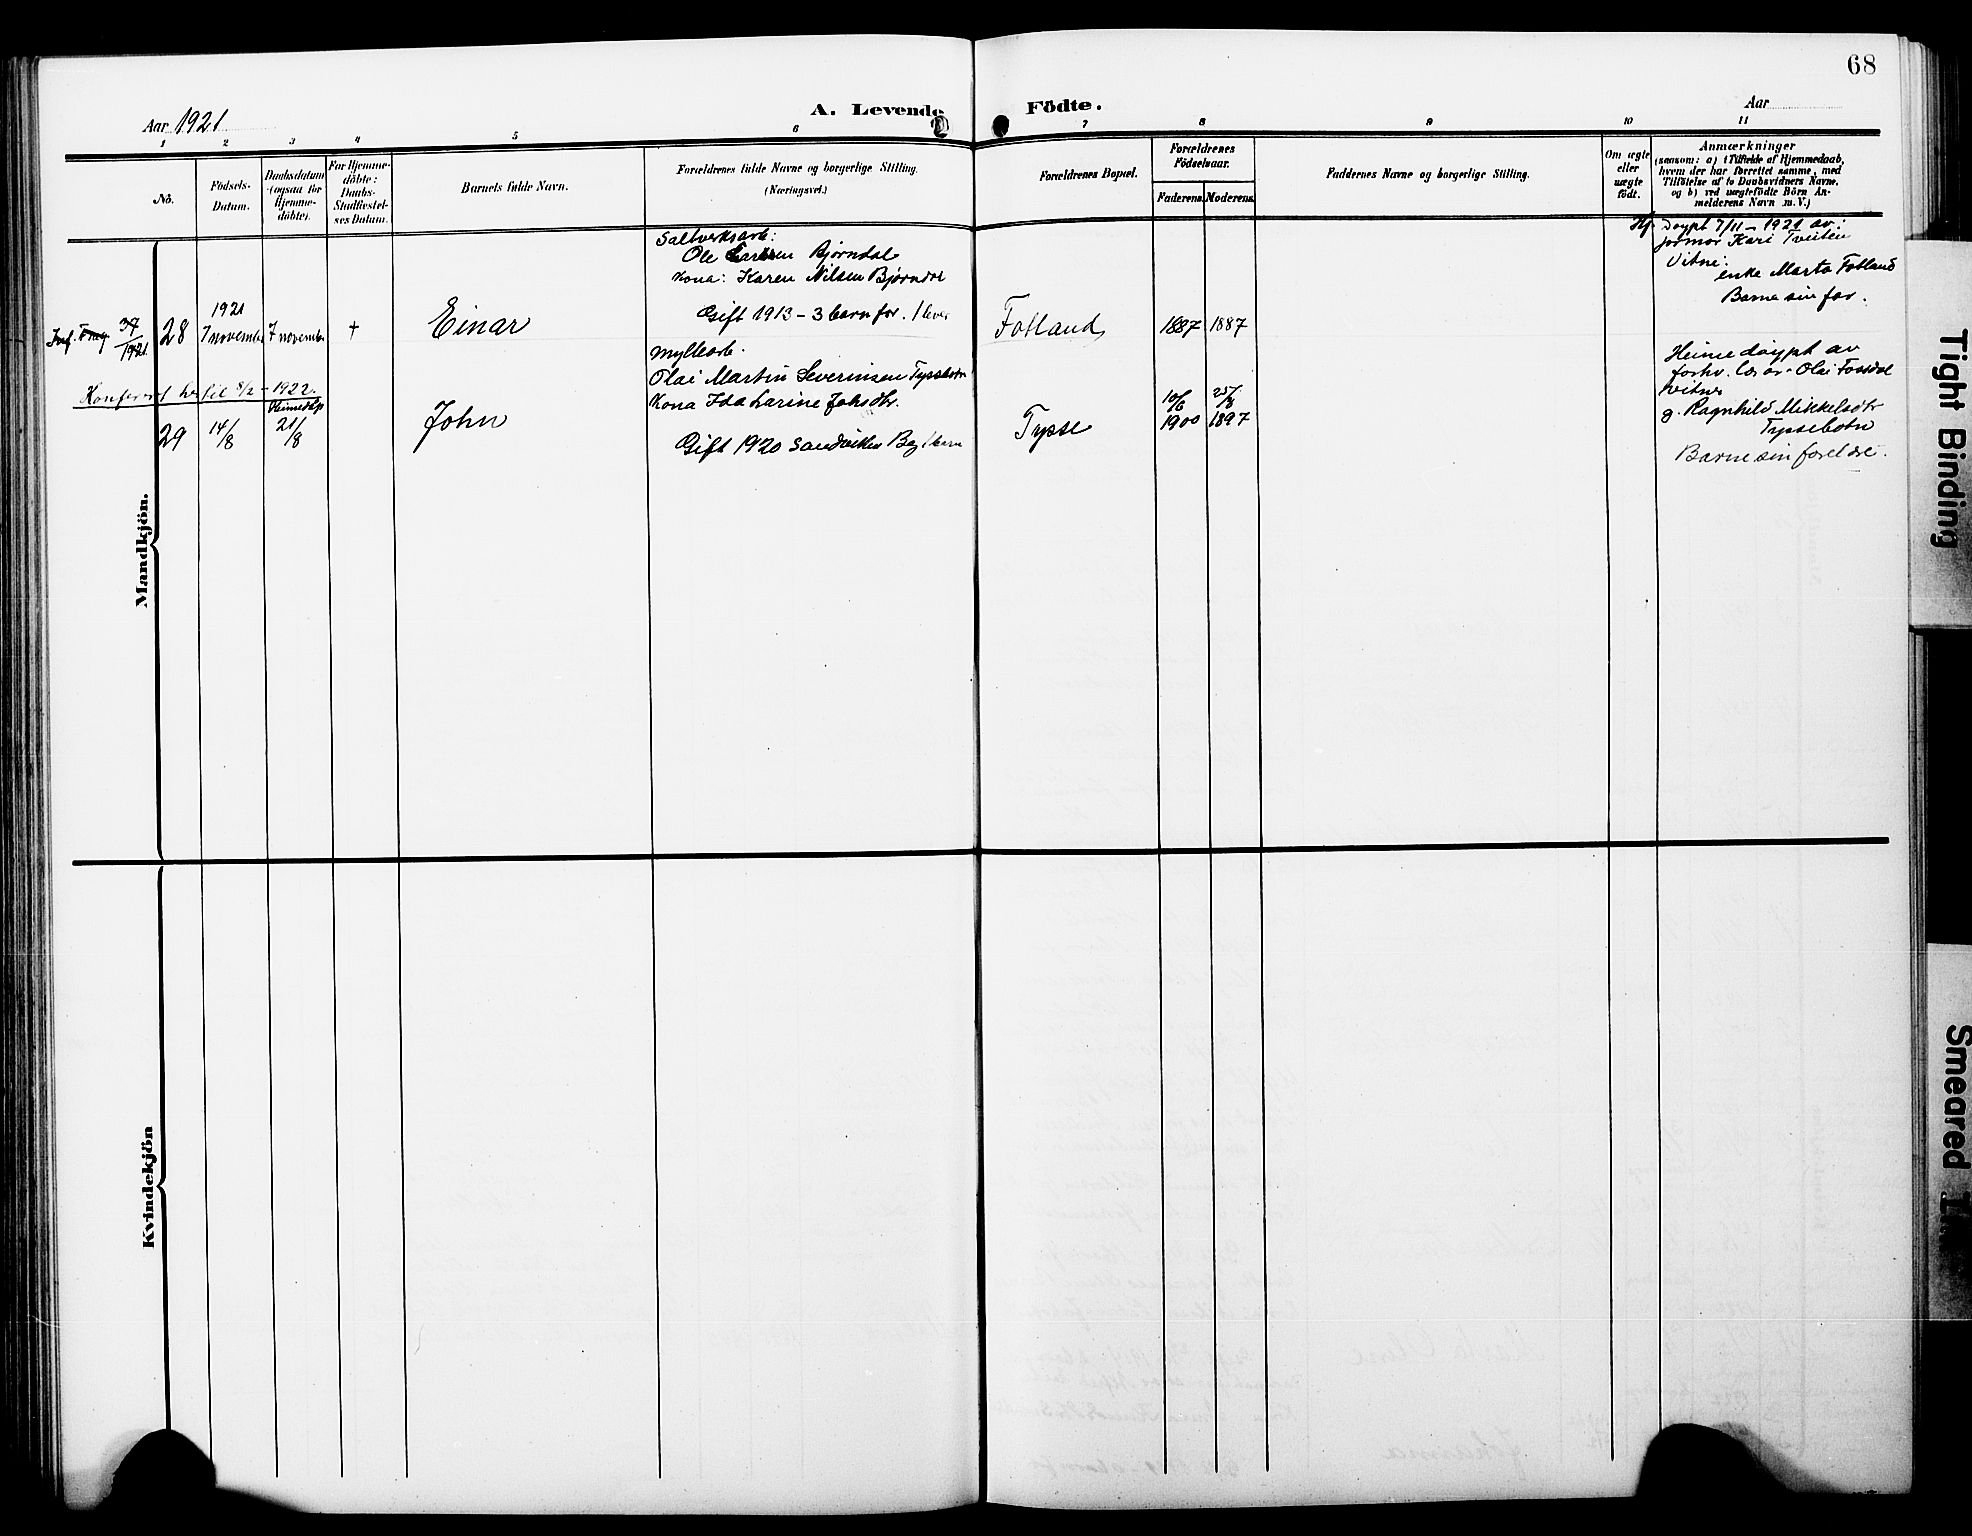 68
Aar 1921
A. Levende
Födte.
Aar
1 2 3 4 5 6 7 8 9 10 11
No.
Födsels-
Datum.
Daabsdatum
(ogsaa for
Hjemme-
döbte).
For Hjemme-
döbte:
Daabs-
Stadfæstel-
ses Datum.
Barnets fulde Navn.
Forældrenes fulde Navne og borgerlige Stilling.
(Næringsvei.)
Forældrenes Bopæl.
Forældrenes
Födselsaar.
Faderens
Moderens
Faddernes Navne og borgerlige Stilling.
Om ægte
eller
uægte
födt.
Anmærkninger
(saasom: a) i Tilfælde af Hjemmedaab,
hvem der har forrettet samme, med
Tilföielse af to Daabsvidners Navne,
og b) ved uægtefödte Börn An-
melderens Navn m. V.)
Mandkjön.
37/1921
28
1921
7 november
7 november
†
Einar
Saltverksarb:
Ole Larsen Bjørndal
Kona: Karen Nilsen Bjørndal
Gift 1913 - 3 barn før. 1 lever
Fotland
1887
1887
Hf.
Døypt 7/11 - 1921 av:
jormor Kari Tveiten
Vitni:
enke Marta Fotland
Barne sin far.
Konferert her til 8/2 - 1922
29
14/8
Heimedøp
21/8
John
Olai Martin Severinsen Tyssebotn
Kona Ida Larine Johsdtr.
Gift 1920 Sandviken Bg 1 barn
Tysse
10/6
1900
25/8
1897
Heimedøypt av
forhv. lærar Olai Fossdal
vitner
g. Ragnhild Mikkelsdtr
Tyssebotn
Barne sin foreldre.
Kvindekjön
Tight Binding
Smeared